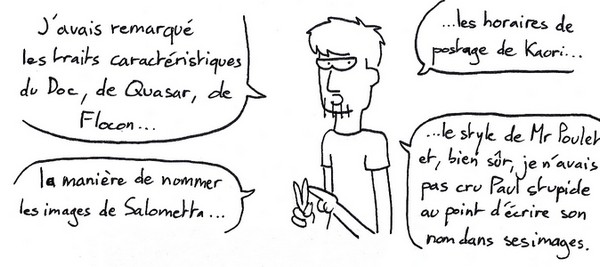 J'avais remarqué
les traits caractéristiques
du Doc, de Quasar, de
Flocon...
la manière de nommer
les images de Salometta...
...les horaires de
postage de Kaori...
...le style de Mr Poulet
et, bien sûr, je n'avais
pas cru Paul stupide
au point d'écrire son
nom dans ses images.